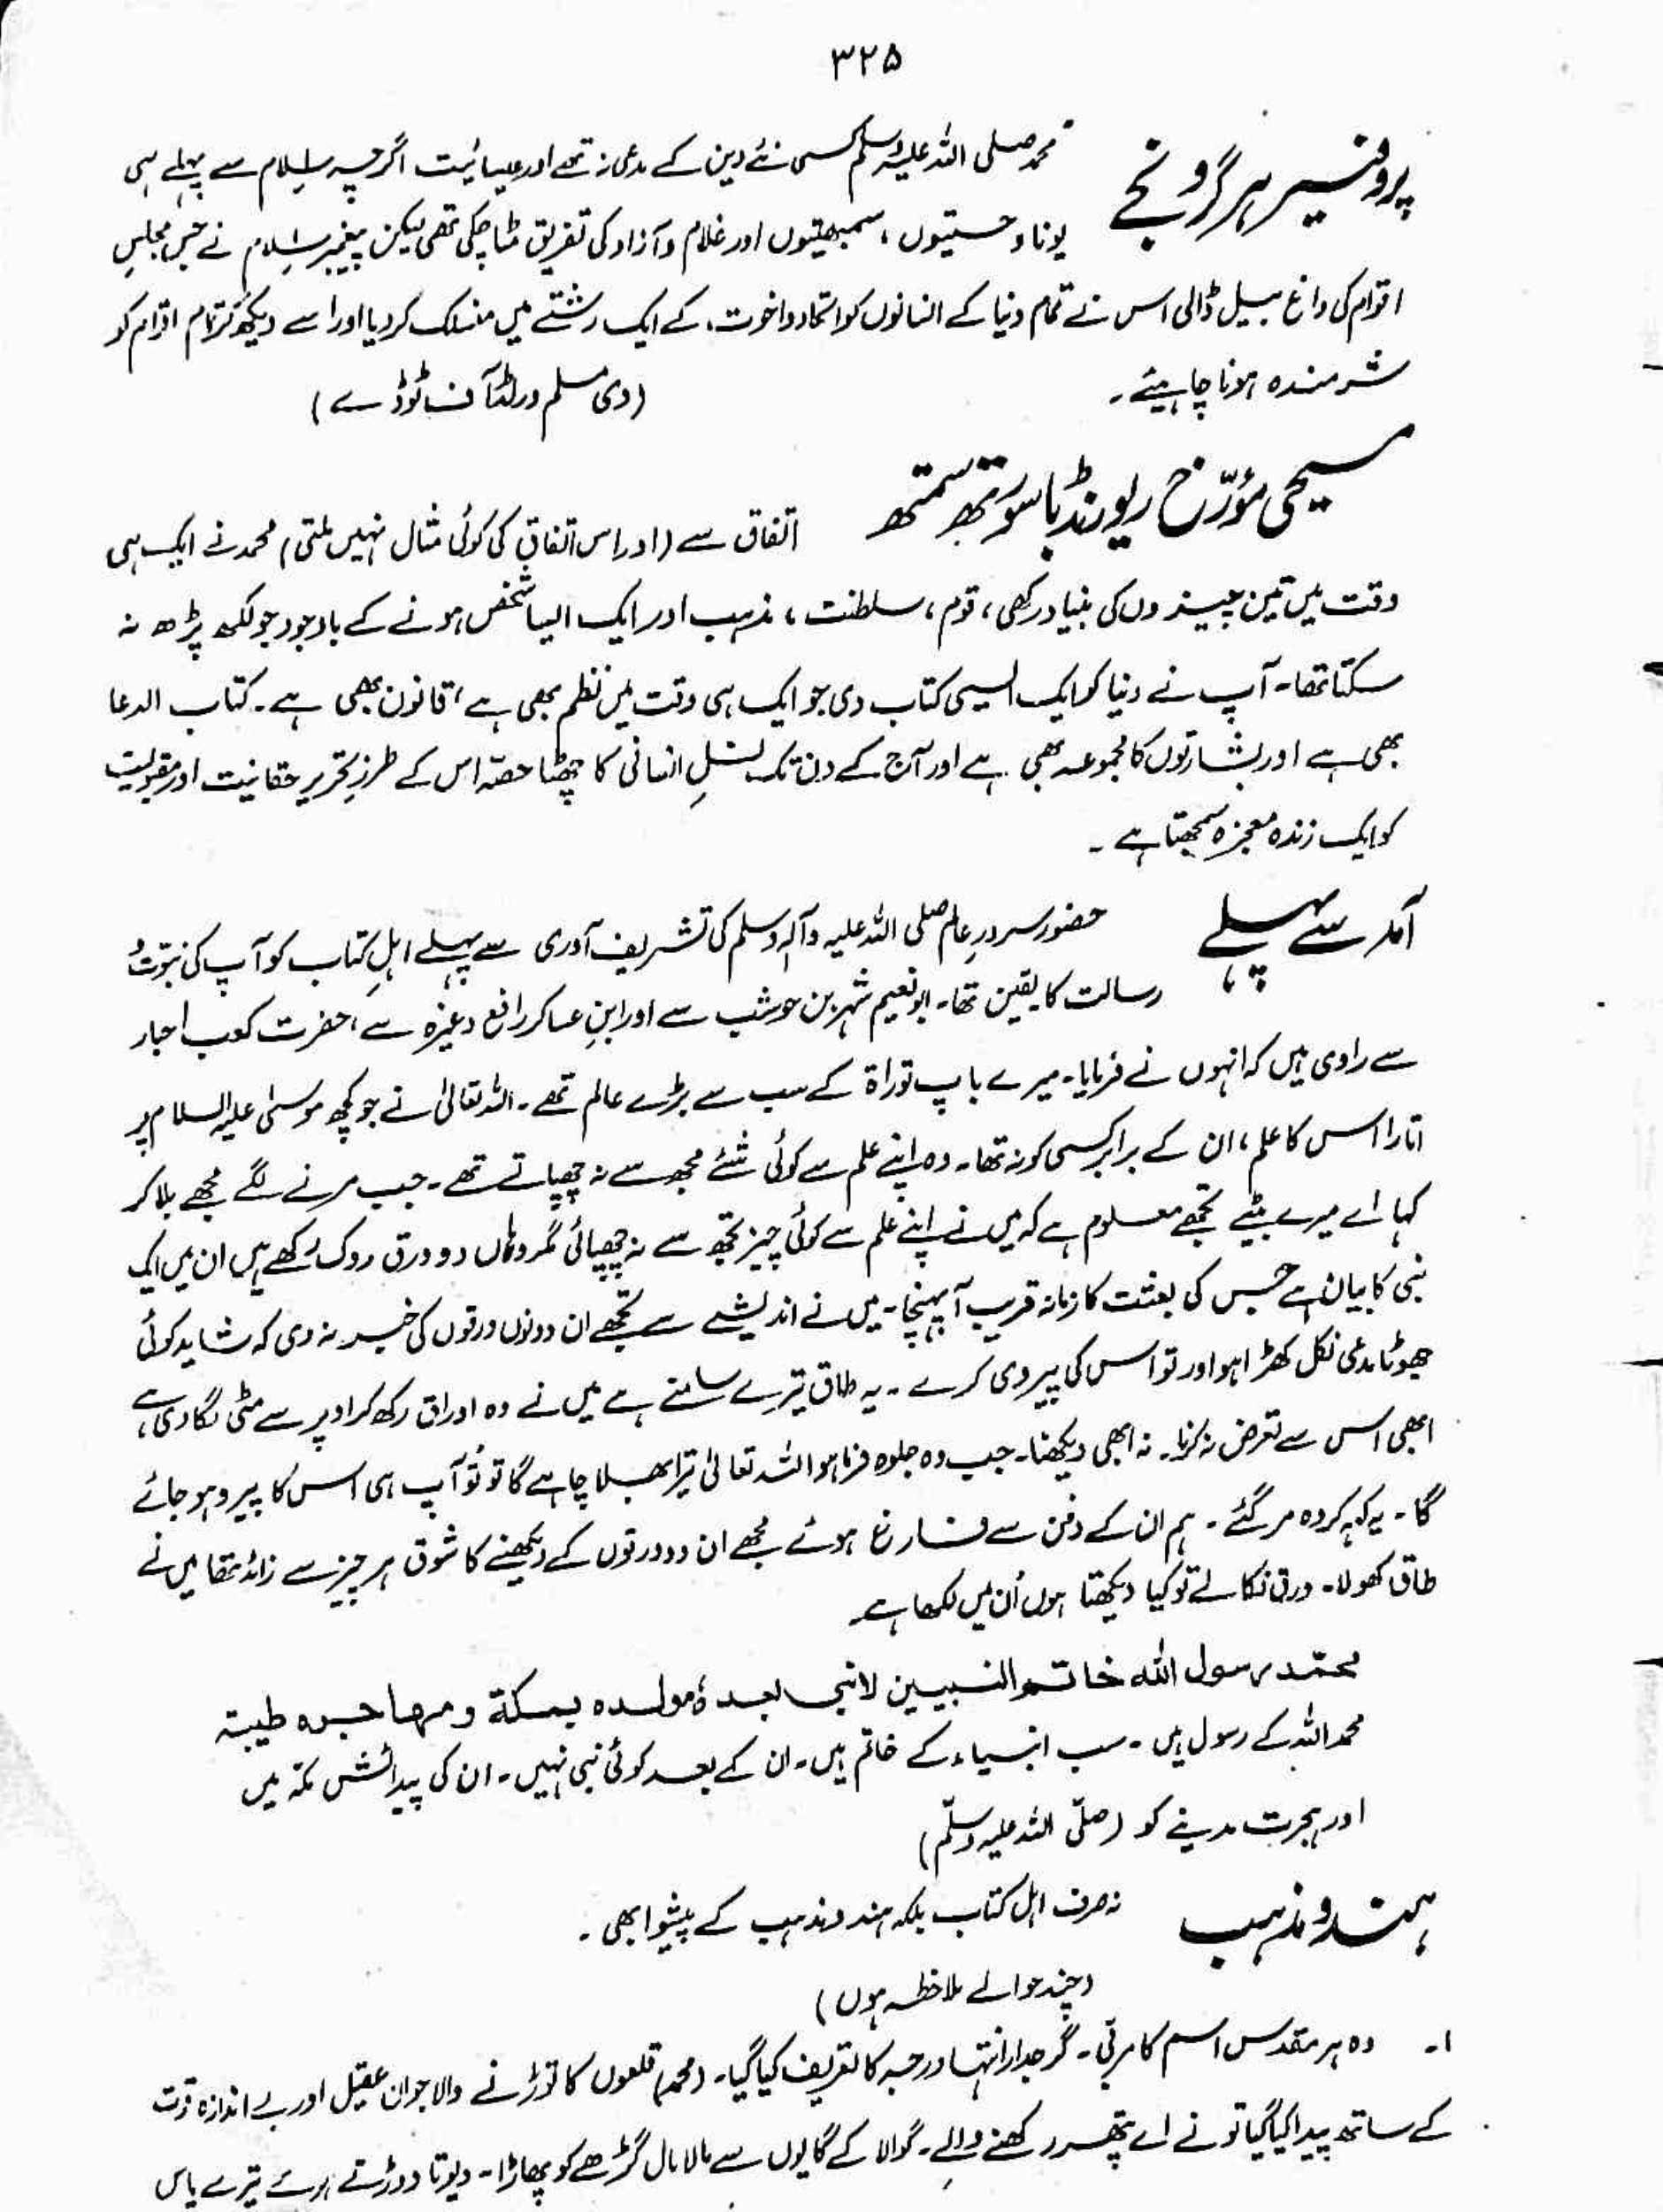 ۳۲۵
پروفیسر ہرگرونجے محمد صلی اللہ علیہ وسلم کسی نئے دین کے مدعی نہ تھے اور عیسائیت اگرچہ اسلام سے پہلے ہی
یونا و حسیتیوں، سمبھیتیوں اور غلام و آزاد کی تفریق مٹا چکی تھی لیکن پیغمبر اسلام نے جس مجلسِ
اقوام کی داغ بیل ڈالی اس نے تمام دنیا کے انسانوں کو اتحاد و اخوت، کے ایک رشتے میں منسلک کر دیا اور اسے دیکھ کر تمام اقوام کو
شرمندہ ہونا چاہیئے۔ (دی مسلم ورلڈ آف ٹوڈے)
مسیحی مؤرّخ ریورنڈ باسورتھ سمتھ اتفاق سے (اور اس اتفاق کی کوئی مثال نہیں ملتی) محمد نے ایک ہی
وقت میں تین چیزوں کی بنیاد رکھی، قوم، سلطنت، مذہب اور ایک ایسا شخص ہونے کے باوجود جو لکھ پڑھ نہ
سکتا تھا۔ آپ نے دنیا کو ایک ایسی کتاب دی جو ایک ہی وقت میں نظم بھی ہے، قانون بھی ہے۔ کتاب الدعا
بھی ہے اور بشارتوں کا مجموعہ بھی ہے اور آج کے دن تک نسلِ انسانی کا چھٹا حصّہ اس کے طرزِ تحریر حقانیت اور مقبولیت
کو ایک زندہ معجزہ سمجھتا ہے۔
آمد سے پہلے حضور سرورِ عالم صلی اللہ علیہ وآلہ وسلم کی تشریف آوری سے پہلے اہلِ کتاب کو آپ کی نبوت و
رسالت کا یقین تھا۔ ابونعیم شہر بن حوشب سے اور ابنِ عساکر رافع وغیرہ سے، حضرت کعب احبار
سے راوی ہیں کہ انہوں نے فرمایا۔ میرے باپ توراۃ کے سب سے بڑے عالم تھے۔ اللہ تعالیٰ نے جو کچھ موسیٰ علیہ السلام پر
اتارا اس کا علم، ان کے برابر کسی کو نہ تھا۔ وہ اپنے علم سے کوئی شئے مجھ سے نہ چھپاتے تھے۔ جب مرنے لگے مجھے بلا کر
کہا اے میرے بیٹے تجھے معلوم ہے کہ میں نے اپنے علم سے کوئی چیز تجھ سے نہ چھپائی مگر وہاں دو ورق روک رکھے ہیں ان میں ایک
نبی کا بیان ہے جس کی بعثت کا زمانہ قریب آ پہنچا۔ میں نے اندیشے سے تجھے ان دونوں ورقوں کی خبر نہ دی کہ شاید کوئی
جھوٹا مدعی نکل کھڑا ہو اور تو اس کی پیروی کرے۔ یہ طاق تیرے سامنے ہے میں نے وہ اوراق رکھ کر اوپر سے مٹی لگا دی ہے،
ابھی اس سے تعرض نہ کرنا۔ نہ ابھی دیکھنا۔ جب وہ جلوہ فرما ہو اللہ تعالیٰ تیرا بھلا چاہے گا تو تُو آپ ہی اس کا پیرو ہو جائے
گا۔ یہ کہہ کر وہ مر گئے۔ ہم ان کے دفن سے فارغ ہوئے مجھے ان دو ورقوں کے دیکھنے کا شوق ہر چیز سے زائد تھا میں نے
طاق کھولا۔ ورق نکالے تو کیا دیکھتا ہوں اُن میں لکھا ہے۔
محمد رسول اللہ خاتم النبیین لانبی بعدہٗ مولدہ بمکۃ ومہاجرہ طیبۃ
محمد اللہ کے رسول ہیں۔ سب انبیاء کے خاتم ہیں۔ ان کے بعد کوئی نبی نہیں۔ ان کی پیدائش مکّہ میں
اور ہجرت مدینے کو (صلّی اللہ علیہ وسلّم)
ہندو مذہب نہ صرف اہل کتاب بلکہ ہندو مذہب کے پیشوا بھی۔
(چند حوالے ملاحظہ ہوں)
۱۔ وہ ہر مقدس اسم کا مربّی۔ گرجدار انتہا درجہ کا تعریف کیا گیا۔ (محمد) قلعوں کا توڑنے والا جوان عقیل اور بے اندازہ قوت
کے ساتھ پیدا کیا گیا تو نے اے پتھر رکھنے والے۔ گوالا کے گایوں سے مالا مال گڑھے کو پھاڑا۔ دیوتا دوڑتے ہوئے تیرے پاس